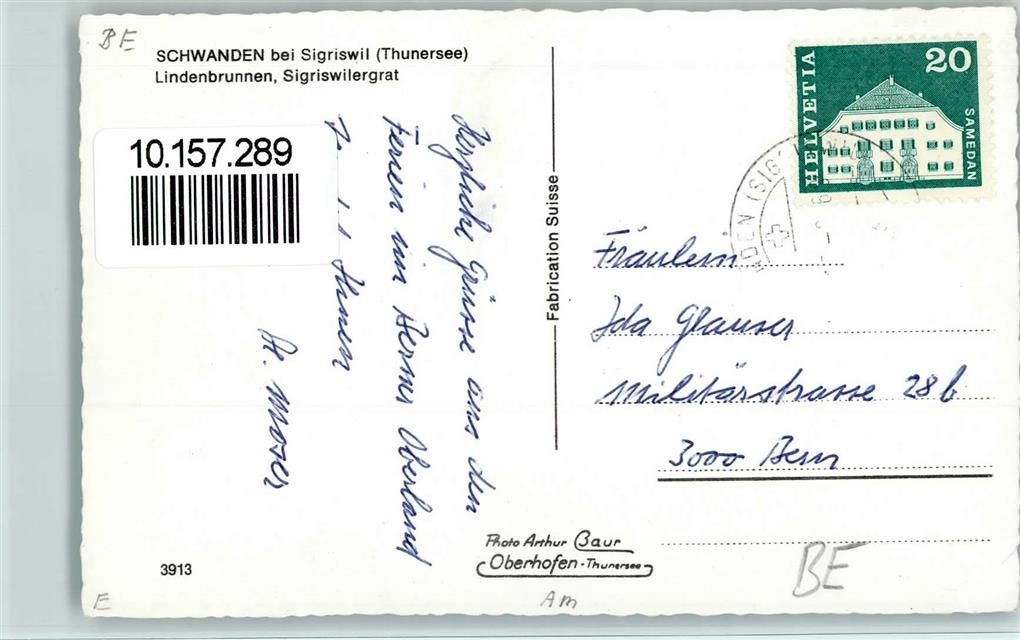 BE
SCHWANDEN bei Sigriswil (Thunersee)
Lindenbrunnen, Sigriswilergrat
10.157.289
Herzliche Grüsse aus den
Ferien im Berner Oberland
Ihnen
H. Moser
Fabrication Suisse
HELVETIA
20
SAMEDAN
DEN (SIG
Fräulein
Ida Glauser
Militärstrasse 28b
3000 Bern
Photo Arthur Baur
Oberhofen-Thunersee
3913
BE
E
Am